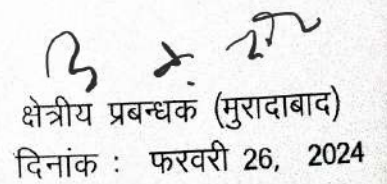 क्षेत्रीय प्रबन्धक (मुरादाबाद)
दिनांक : फरवरी 26, 2024